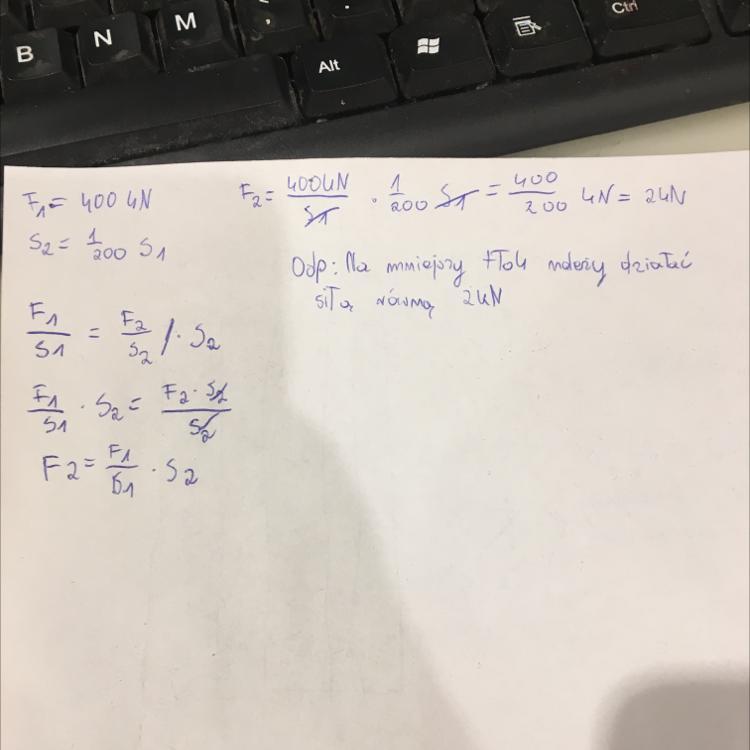 B N M , .
Alt Ctrl
F1 = 400 kN
S2 = 1/200 S1
F1/S1 = F2/S2 /· S2
F1/S1 · S2 = F2 · S2/S2
F2 = F1/S1 · S2
F2 = 400kN/S1 · 1/200 S1 = 400/200 kN = 2kN
Odp: Na mniejszy tłok należy działać
siłą równą 2kN